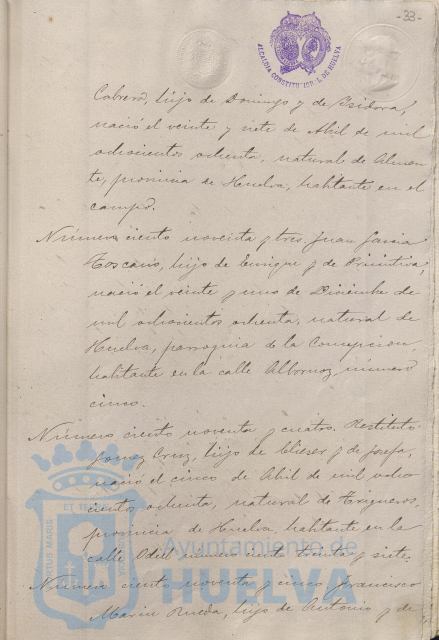 -33-
ALCALDIA CONSTITUCIONAL DE HUELVA
Cabrera, hijo de Domingo y de Isidora,
nació el veinte y siete de Abril de mil
ochocientos ochenta, natural de Almon-
te, provincia de Huelva, habitante en el
campo.
Número ciento noventa y tres. Juan Garcia
Toscano, hijo de Enrique y de Primitiva,
nació el veinte y uno de Diciembre de
mil ochocientos ochenta, natural de
Huelva, parroquia de la Concepcion,
habitante en la calle Albornoz número
cinco.
Número ciento noventa y cuatro. Restituto
Gomez Cruz, hijo de Eliezer y de Josefa,
nació el cinco de Abril de mil ocho
cientos ochenta, natural de Trigueros,
provincia de Huelva, habitante en la
calle Odiel número ciento treinta y siete.
Número ciento noventa y cinco Francisco
Marin Rueda, hijo de Antonio y de
Ayuntamiento de
HUELVA